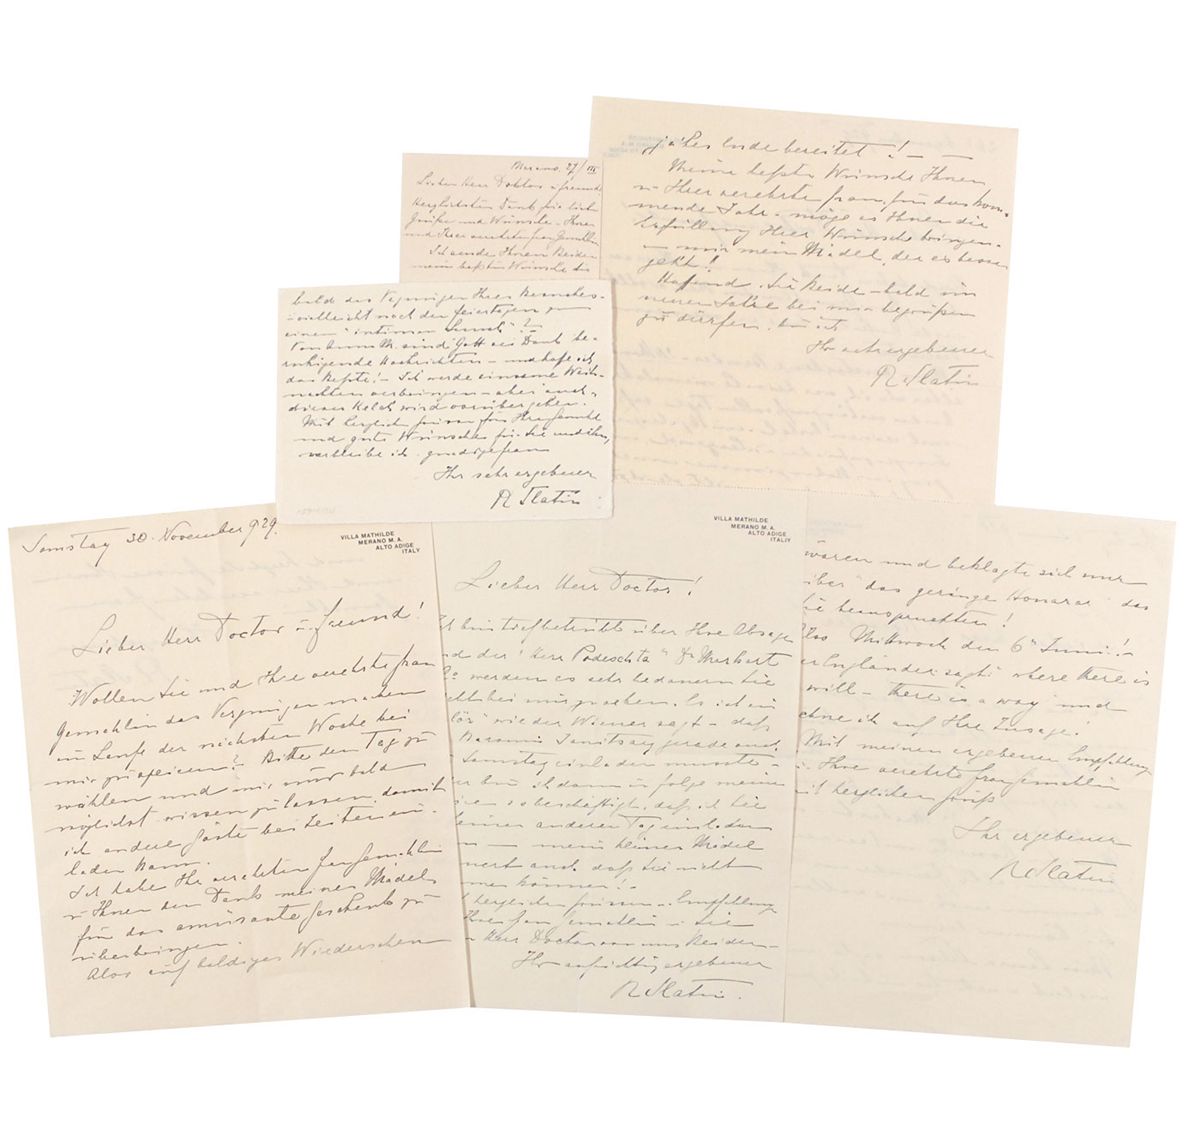 Merano. 27/III
Lieber Herr Doktor u Freund
Herzlichsten Dank für liebe
Grüße und Wünsche. Ihnen
und Ihrer verehrten Frau Gemahlin
Ich sende Ihnen Beiden
meine besten Wünsche
jähes Ende bereitet! –
Meine besten Wünsche Ihnen
u Ihrer verehrten Frau, für das kom-
mende Jahr – möge es Ihnen die
Erfüllung Ihrer Wünsche bringen.
mein Mädel, der es besser
geht!
Hoffend, Sie Beide – bald im
neuen Jahre bei mir begrüßen
zu dürfen, bin ich
Ihr sehr ergebener
R Slatin
bald das Vergnügen Ihres Besuches –
vielleicht noch den Feiertagen zu
einem "intimen Lunch"?
sind Gott sei Dank be-
ruhigende Nachrichten – und hoffe ich
das Beste! – Ich werde einsame Weih-
nachten verbringen – aber auch
dieser Kelch wird vorübergehen.
Mit herzlichen Grüssen für Ihre Familie
und guten Wünschen für Sie und Ihn,
verbleibe ich, gnädige Frau
Ihr sehr ergebener
R Slatin
Samstag 30. November 929.
VILLA MATHILDE
MERANO M. A.
ALTO ADIGE
ITALY
Lieber Herr Doctor u. Freund!
Wollen Sie und Ihre verehrte Frau
Gemahlin das Vergnügen machen
im Laufe der nächsten Woche bei
mir zu speisen? Bitte den Tag zu
wählen und mir nur bald
möglichst wissen zu lassen, damit
ich andere Gäste bei Zeiten ein-
laden kann.
Ich habe Ihr verehrten Fr Gemahlin
u Ihnen den Dank meines Mädels
für das amüsante Geschenk zu
überbringen.
Also auf baldiges Wiedersehen
VILLA MATHILDE
MERANO M. A.
ALTO ADIGE
ITALIY
Lieber Herr Doctor!
bin tiefbetrübt über Ihre Absage
und der "Herr Podeschta" Dr Markart
werden es sehr bedauern Sie
nicht bei mir zu sehen. Es ist ein
wie der Wiener sagt – daß
Baronin Sanitsary gerade auch
Samstag einladen musste –
bin ich dann in Folge meiner
so beschäftigt, daß ich Sie
keinen anderen Tag einladen
– mein kleines Mädel
auch, daß Sie nicht
können! –
herzlichen Grüssen u. Empfehlungen
Ihrer Frau Gemahlin u. Sie
Herr Doctor von uns Beiden –
Ihr aufrichtig ergebener
R Slatin.
waren und beklagte sich nur
über "das geringe Honorar" das
Sie beanspruchten!
Also Mittwoch den 6ten Juni! –
der Engländer sagt: where there is
a will – there is a way und
rechne ich auf Ihre Zusage!
Mit meinen ergebenen Empfehlungen
Ihre verehrte Frau Gemahlin
mit herzlichen Gruß
Ihr ergebener
R Slatin